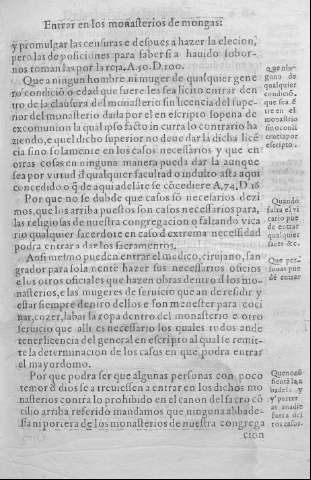 Entrar en los monasterios de mongas:
y promulgar las censuras e despues a hazer la elecion,
pero las deposiciones para saber si a hauido sobor-
nos toman las por la reja. A. 50. D. 100.
Que a ningun hombre ni muger de qualquier gene
ro condiciõ o edad que fuere les sea licito entrar den
tro de la clausura del monasterio sin licencia del supe-
rior del monasterio dada por el en escripto so pena de
excomunion la qual ipso facto incurra lo contrario ha
ziendo, e quel dicho superior no deue dar la dicha licẽ
cia sino solamente en los casos necessarios y que en
otras cosas en ninguna manera pueda dar la aunque
sea por virtud d qualquier facultad o indulto asta aqui
concedido o q̃ de aqui adelãte se cõcediere A, 74, D. 16
Por que no se dubde que casos sõ necesarios dezi
mos, que los arriba puestos son casos necessarios para,
las religiosas de nuestra congregacion e faltando vica
rio qualquier sacerdote en caso d extrema necessidad
podra entrar a dar los sacramentos.
Ansi mesmo pueden entrar el medico, cirujano, san
grador para sola mente hazer sus necessarios oficios
e los otros oficiales que hazen obras dentro d los mo-
nasterios, e las mugeres de seruicio que an de residir y
estar siempre dentro dellos e son menester para coci
nar, cozer, labar la ropa dentro del monasterio e otro
seruicio que alli es necessario los quales todos an de
tener licencia del general en escripto al qual se remit-
te la determinacion de los casos en que podra entrar
el mayordomo.
Por que podra ser que algunas personas con poco
temor d dios se atreuiessen a entrar en los dichos mo
nasterios contra lo prohibido en el canon del sacro cõ
cilio arriba referido mandamos que ninguna abbade-
sa ni portera de los monasterios de nuestra congrega
cion
guna de
qualquier
condiciõ,
que sea ẽ
tre en el
monastrio
sino conli
cencia por
escripto.
Quando
falta el vi
cario pue
de entrar
qual quier
sacer &c.
Que per-
sonas pue
dẽ entrar
badesa
y portera
a nadie
fuera del
tos casos.